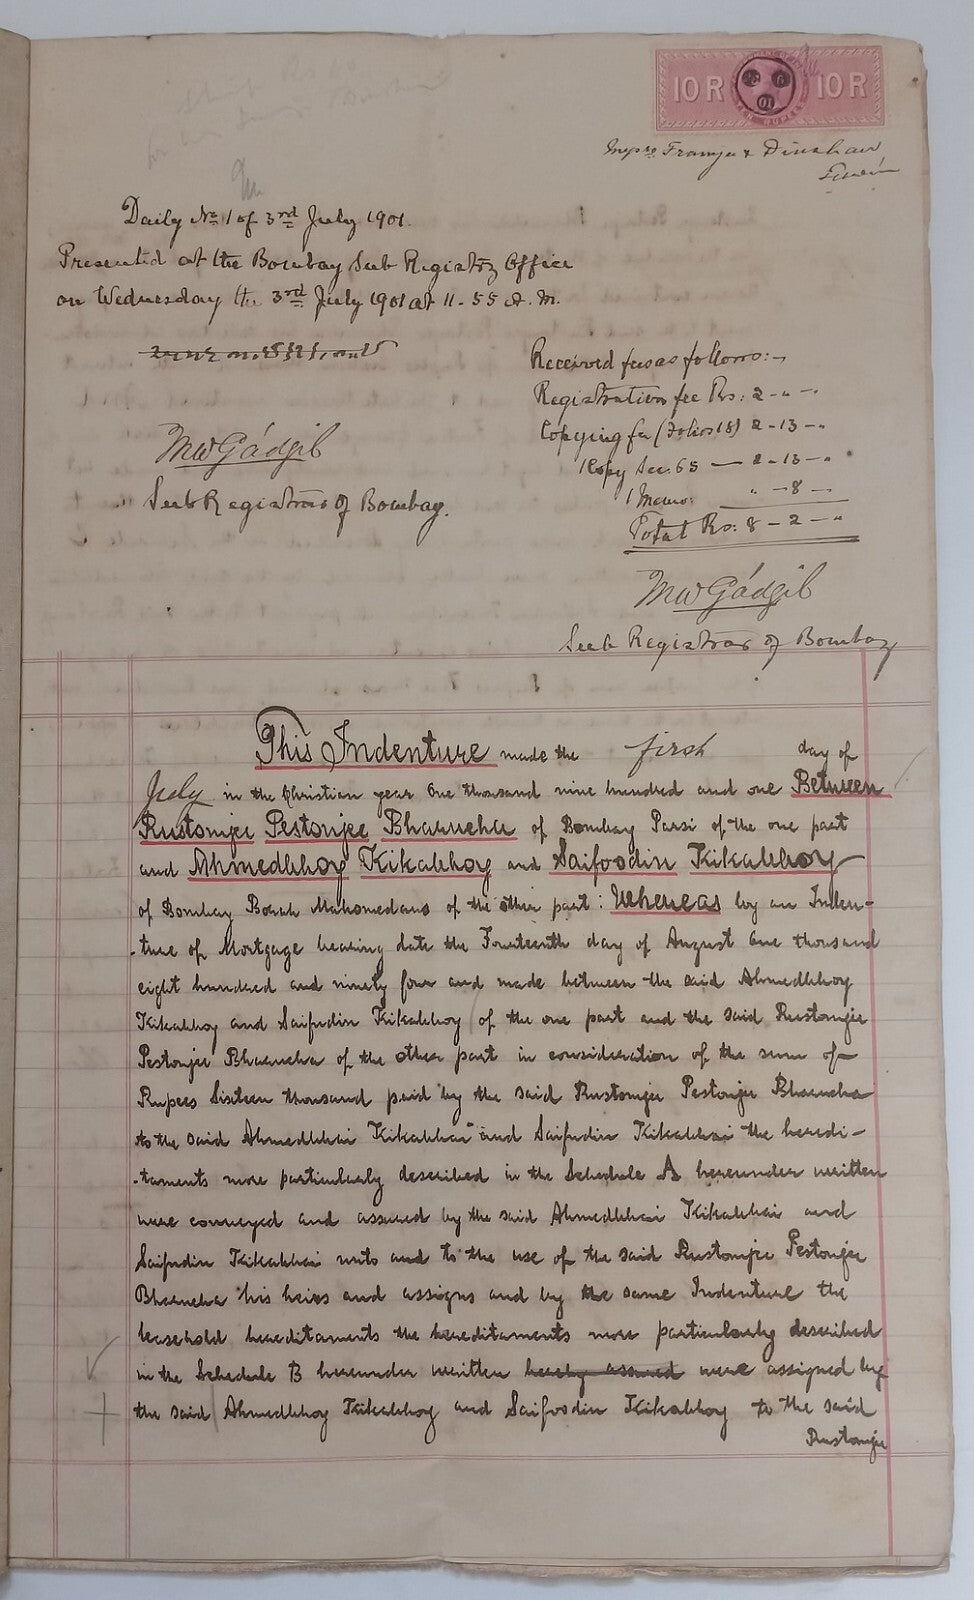 10 R 10 R
Messrs Framjee & Dinshaw
Daily No. 1 of 3rd July 1901.
Presented at the Bombay Sub Registry Office
on Wednesday the 3rd July 1901 at 11-55 A.M.
Received fees as follows:-
Registration fee Rs: 2-"-"
Copying fee (Folios 18) 2-13-"
1 Copy Sec. 65 — 2-13-"
1 Memo: "-8-"
Total Rs: 8-2-"
MW Gádgil
Sub Registrar of Bombay.
MW Gádgil
Sub Registrar of Bombay
This Indenture made the first day of
July in the Christian year One thousand nine hundred and one Between
Rustomjee Pestonjee Bharucha of Bombay Parsi of the one part
and Ahmedbhoy Kikabhoy and Saifoodin Kikabhoy
of Bombay Borah Mahomedans of the other part: Whereas by an Inden-
-ture of Mortgage bearing date the Fourteenth day of August One thousand
eight hundred and ninety four and made between the said Ahmedbhoy
Kikabhoy and Saifudin Kikabhoy of the one part and the said Rustomjee
Pestonjee Bharucha of the other part in consideration of the sum of
Rupees Sixteen thousand paid by the said Rustomjee Pestonjee Bharucha
to the said Ahmedbhai Kikabhai and Saifudin Kikabhai the heredi-
-taments more particularly described in the Schedule A hereunder written
were conveyed and assured by the said Ahmedbhai Kikabhai and
Saifudin Kikabhai unto and to the use of the said Rustomjee Pestonjee
Bharucha his heirs and assigns and by the same Indenture the
leasehold hereditaments the hereditaments more particularly described
in the Schedule B hereunder written hereby assured were assigned by
the said Ahmedbhoy Kikabhoy and Saifoodin Kikabhoy to the said
Rustomjee